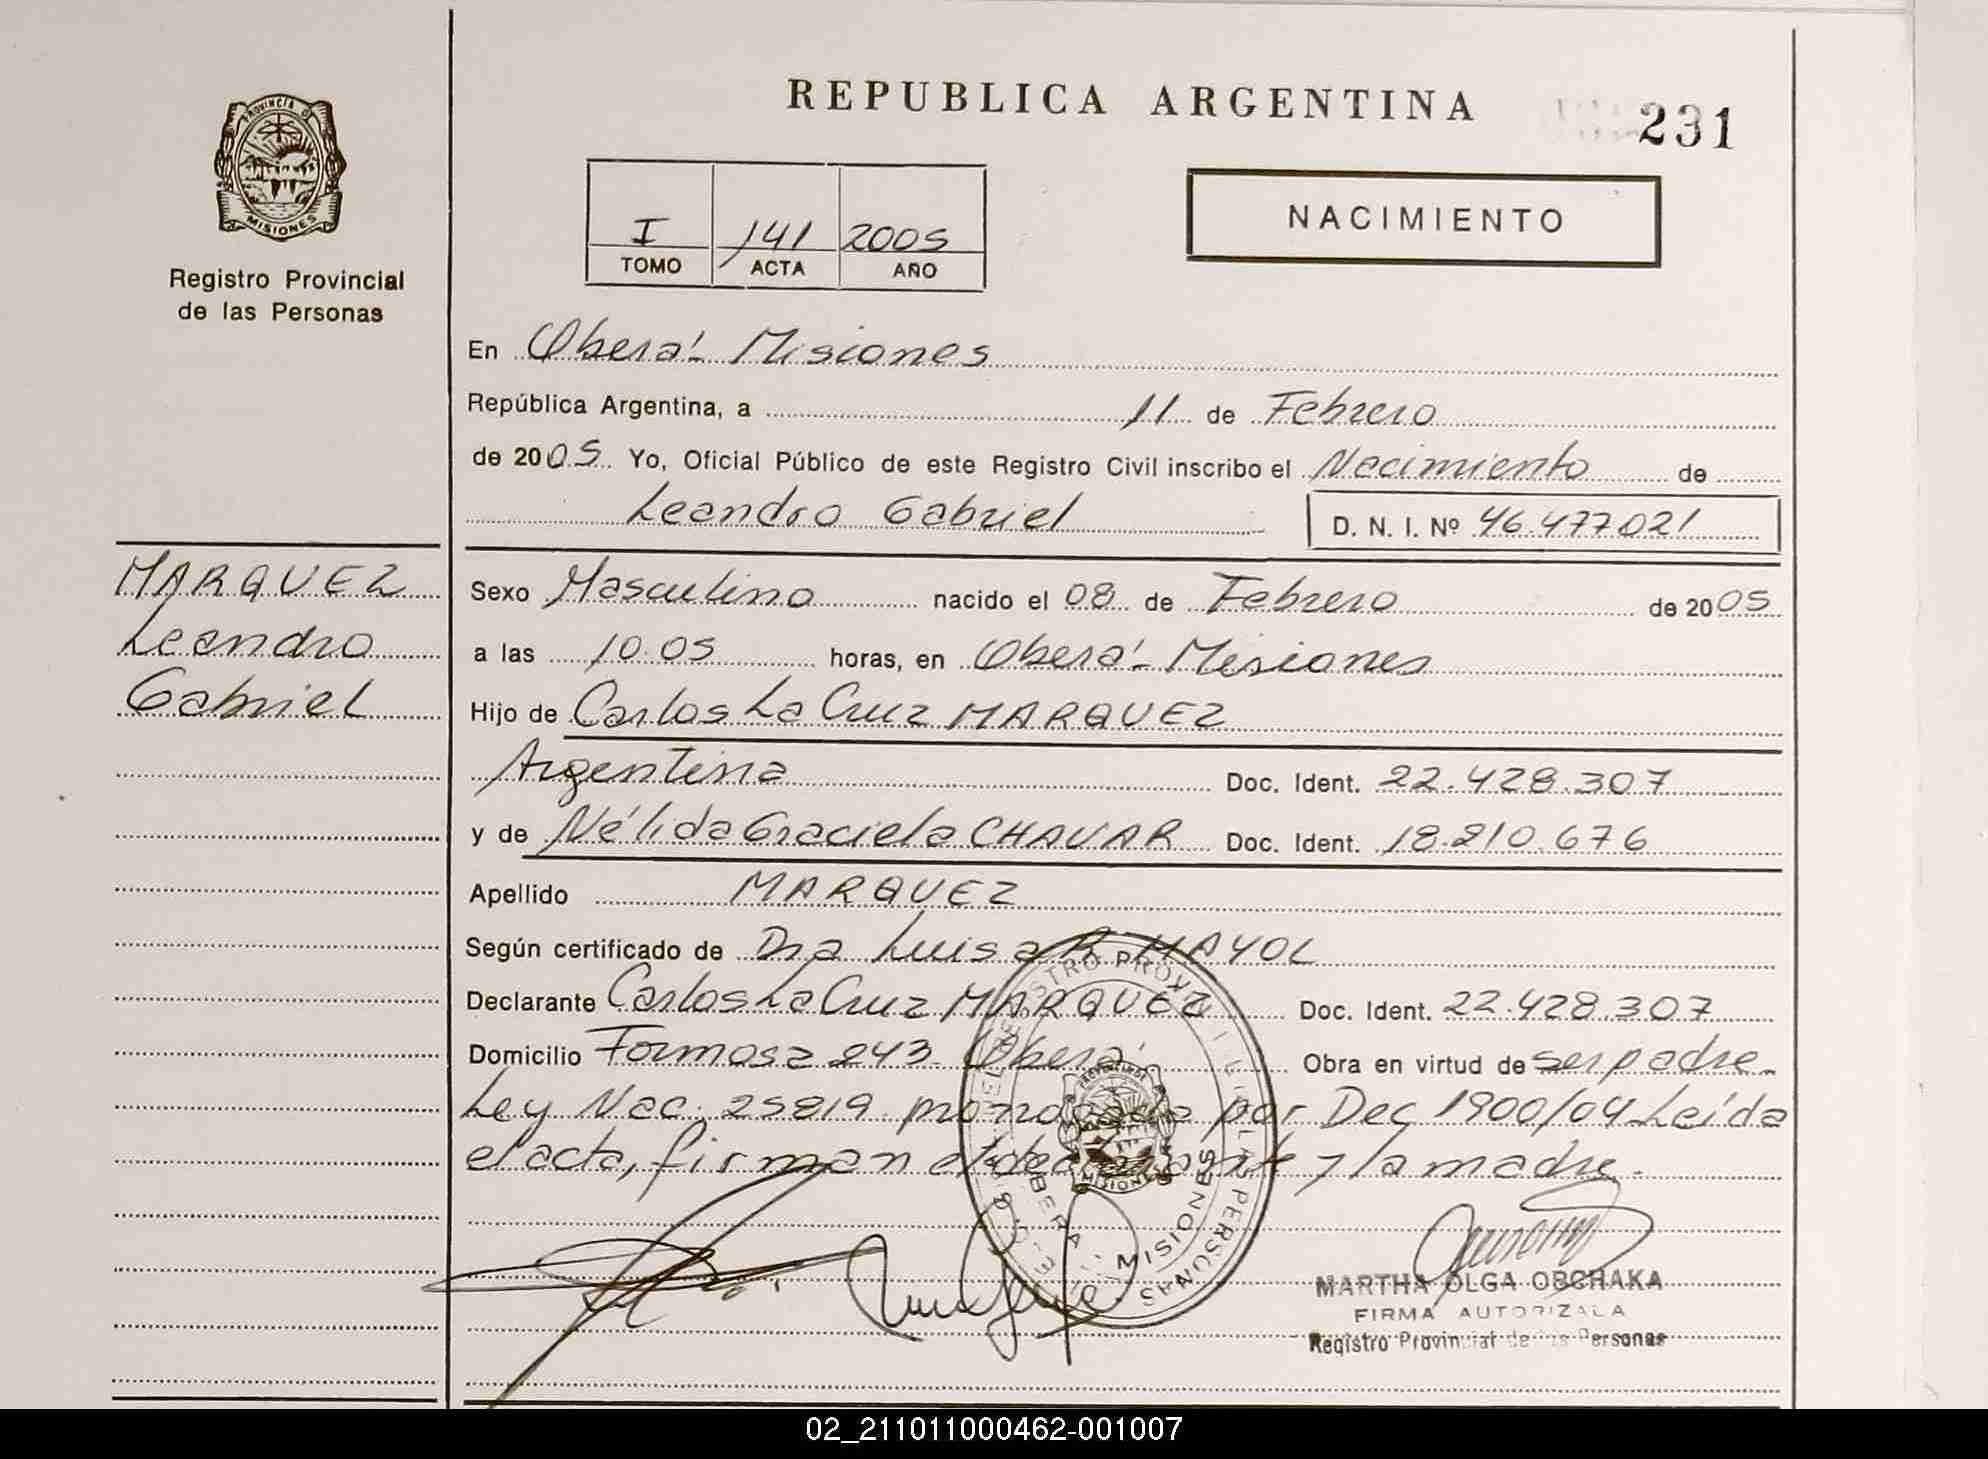 REPUBLICA ARGENTINA
231
PROVINCIA D
MISIONES
Registro Provincial
de las Personas
I 141 2005
TOMO ACTA AÑO
NACIMIENTO
En Oberá - Misiones
República Argentina, a 11 de Febrero
de 2005 Yo, Oficial Público de este Registro Civil inscribo el Nacimiento de
Leandro Gabriel D. N. I. Nº 46.477021
MARQUEZ
Leandro
Gabriel
Sexo Masculino nacido el 08 de Febrero de 2005
a las 10.05 horas, en Oberá - Misiones
Hijo de Carlos La Cruz MARQUEZ
Argentina Doc. Ident. 22.428.307
y de Nélida Graciela CHAVAR Doc. Ident. 18.210.676
Apellido MARQUEZ
Según certificado de Dra Luisa R. MAYOL
Declarante Carlos La Cruz MARQUEZ Doc. Ident. 22.428.307
Domicilio Formosa 243. Oberá. Obra en virtud de ser padre.
Ley Nac. 25819. por Dec 1900/04 Leída
el acta, firman el declarante y la madre.
MISIONES
MARTHA OLGA OBCHAKA
FIRMA AUTORIZADA
Registro Provincial de las Personas
02_211011000462-001007